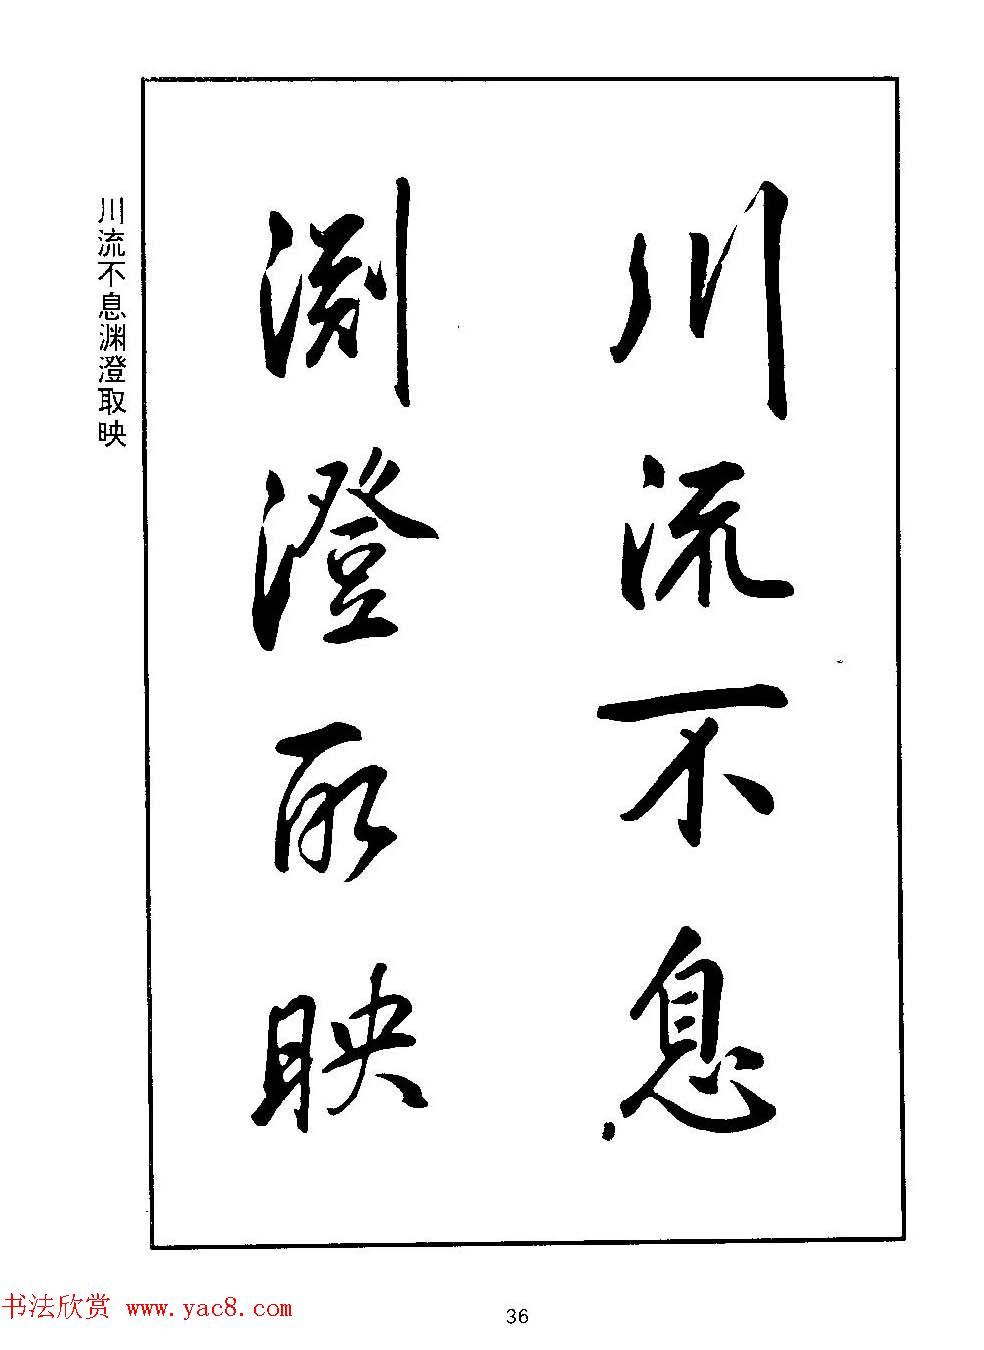 川流不息
渊澄取映
川流不息渊澄取映
书法欣赏 www.yac8.com
36